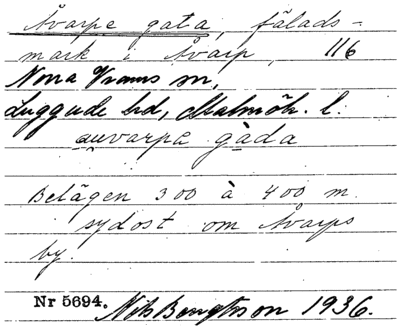 Åvarpe gata, fälads-
mark i Åvarp, 116
Norra Vrams sn,
Luggude hd, Malmöh. l.
auvarpe gàda
Belägen 300 à 400 m.
sydost om Åvarps
by.
Nr 5694. Nils Bengtsson 1936.